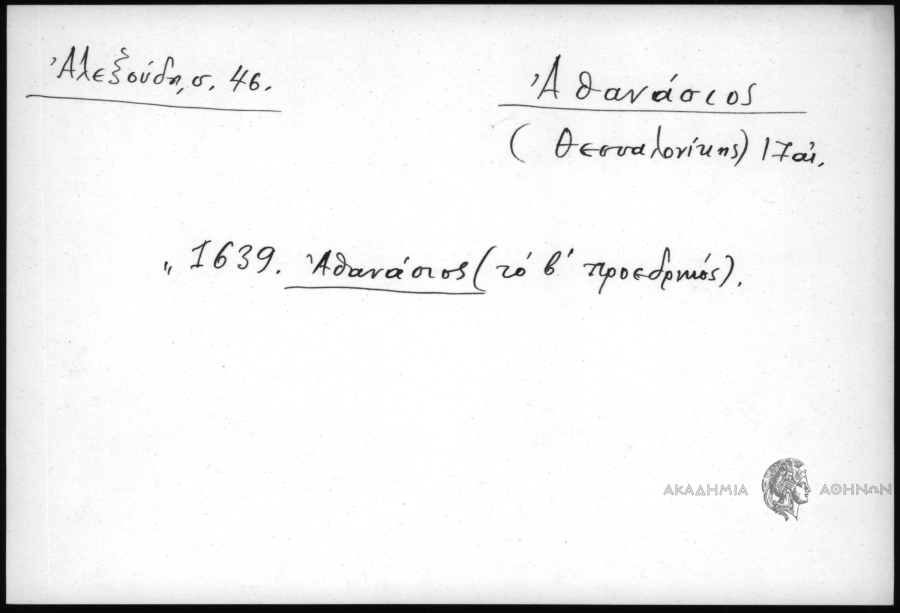 Ἀλεξούδη, σ. 46.
Ἀθανάσιος
(Θεσσαλονίκης) 17 αἰ.
„ 1639. Ἀθανάσιος (τό β' προεδρικός).
ΑΚΑΔΗΜΙΑ ΑΘΗΝΩΝ